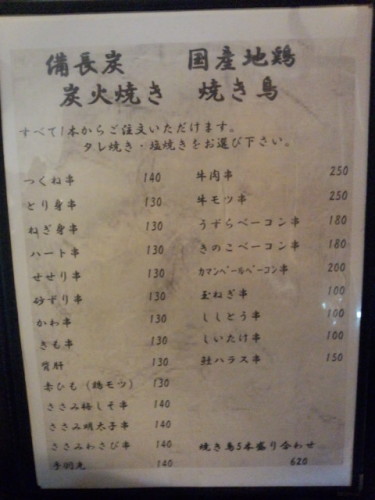 備長炭 国産地鶏
炭火焼き 焼き鳥
すべて1本からご注文いただけます。
タレ焼き・塩焼きをお選び下さい。
つくね串 140
とり身串 130
ねぎ身串 130
ハート串 130
せせり串 130
砂ずり串 130
かわ串 130
きも串 130
背肝 130
赤ひも(鶏モツ) 130
ささみ梅しそ串 140
ささみ明太子串 140
ささみわさび串 140
手羽先 140
牛肉串 250
牛モツ串 250
うずらベーコン串 180
きのこベーコン串 180
カマンベールベーコン串 200
玉ねぎ串 100
ししとう串 100
しいたけ串 100
鮭ハラス串 150
焼き鳥5本盛り合わせ
620